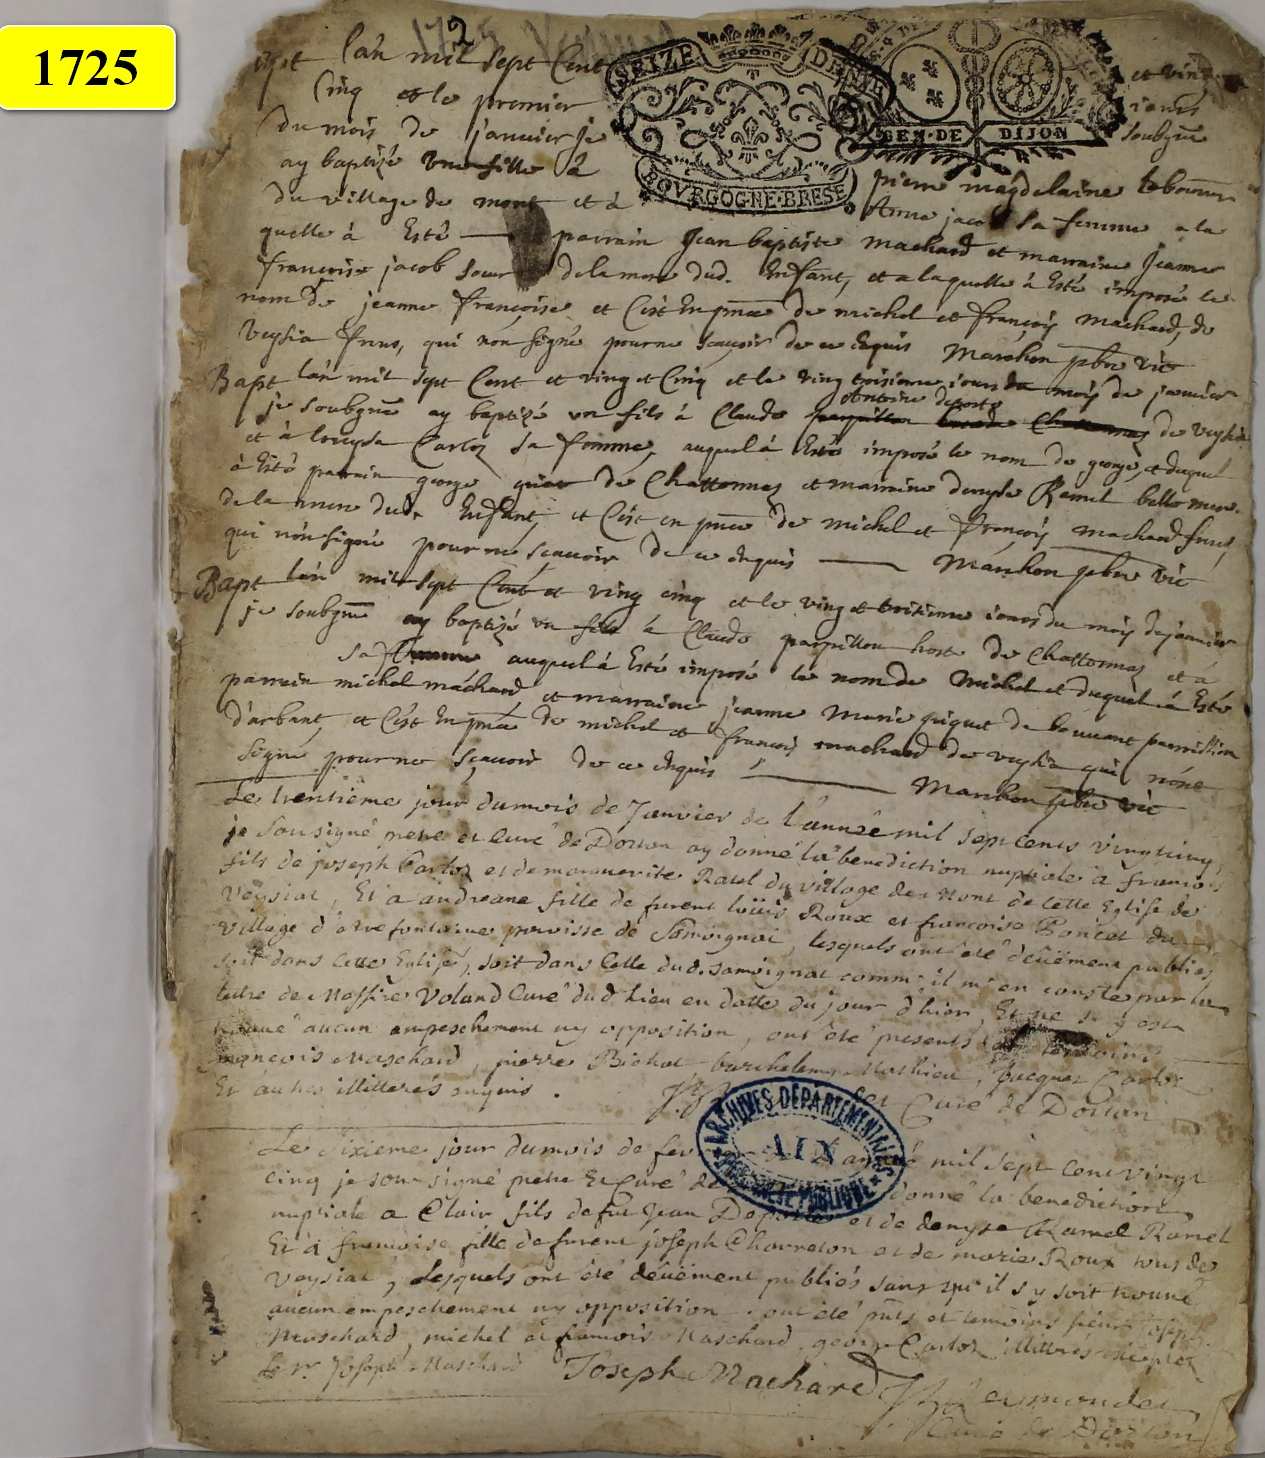 1725
2
1725
Bapt lan mil sept Cent et vingt
SEIZE DENIE
BOVRGOGNE·BRESE
GEN·DE DIJON
Cinq et le premier jours
du mois de janvier je soubzne
ay baptizé une fille à pierre magdelaine
du village de mont et à Anne jacob sa femme a la
quelle à Esté parrain Jean baptiste machard et marraine Jeanne
francoise jacob soeur de la mere dud. Enfant, et a laquelle à Esté imposé le
nom de jeanne françoise et C'est En pnce de michel et françois machard, de
Veysia frers, qui non signé pour ne sçavoir de ce enquis Marchon pbre vic
Bapt lan mil sept Cent et ving et Cinq et le ving troisieme iours du mois de janvier
je soubzne ay baptizé un fils à Claude Antoine de Veysia
et à Carloz sa femme, auquel à Esté imposé le nom de george, et duquel
à Esté parrain george de Chattonnaz et marraine denyse Ramel belle mere
de la mere dud. Enfant, et C'est en pnce de michel et françois machard frers,
qui non signé pour ne sçavoir de ce enquis Marchon pbre vic
Bapt lan mil sept Cent et ving cinq et le ving et troisieme iours du mois de janvier
je soubzne ay baptizé un fils à Claude parpillon hoste de Chattonnaz et à
sa femme auquel à Esté imposé le nom de Michel et duquel à Esté
parrain michel machard et marraine jeanne Marie guiguet de bouvant parroisse
d'arbant, et C'est En pnce de michel et françois machard de veysia qui n'ont
signé pour ne sçavoir de ce enquis Marchon pbre vic
Le trentième jour du mois de Janvier de l'année mil sept cents vingt cinq,
je Sousigné pretre et Curé de Dortan ay donné la benediction nuptiale à francois
fils de joseph Carloz et de marguerite Ratel du village de Mont de cette Eglise de
Veysiat, Et à andreane fille de furent loüis Roux et francoise Poncet du
village d'outrefontaine paroisse de Samoignat, lesquels ont été deüement publiés
soit dans cette Eglise, soit dans Celle dud. Samoignat comme il m'en conste par la
lettre de Messire Voland Curé dud lieu en datte du jour d'hier, Et ne s'y est
trouvé aucun empeschement ny opposition, ont été presents temoins
francois Maschard, pierre Bichat barthelemy Mathieu, Jacques Carloz
Et autres illitterés enquis. Curé de Dortan
ARCHIVES DÉPARTEMENTALES
AIN
Le Sixieme jour du mois de fev mil sept cent vingt
cinq je sousigné pretre Et Curé de donné la benediction
nuptiale a Clair fils de fut Jean et de denyse Ramel
Et à francoise fille de furent joseph Charreton et de marie Roux tous de
Veysiat, Lesquels ont été deüement publiés sans qu'il s'y soit trouvé
aucun empeschement ny opposition, ont été pnts et temoins sieur joseph
Maschard, michel et francois Maschard, george Carloz illittérés excepté
le sr Joseph Maschard Joseph Machard
Curé de Dortan